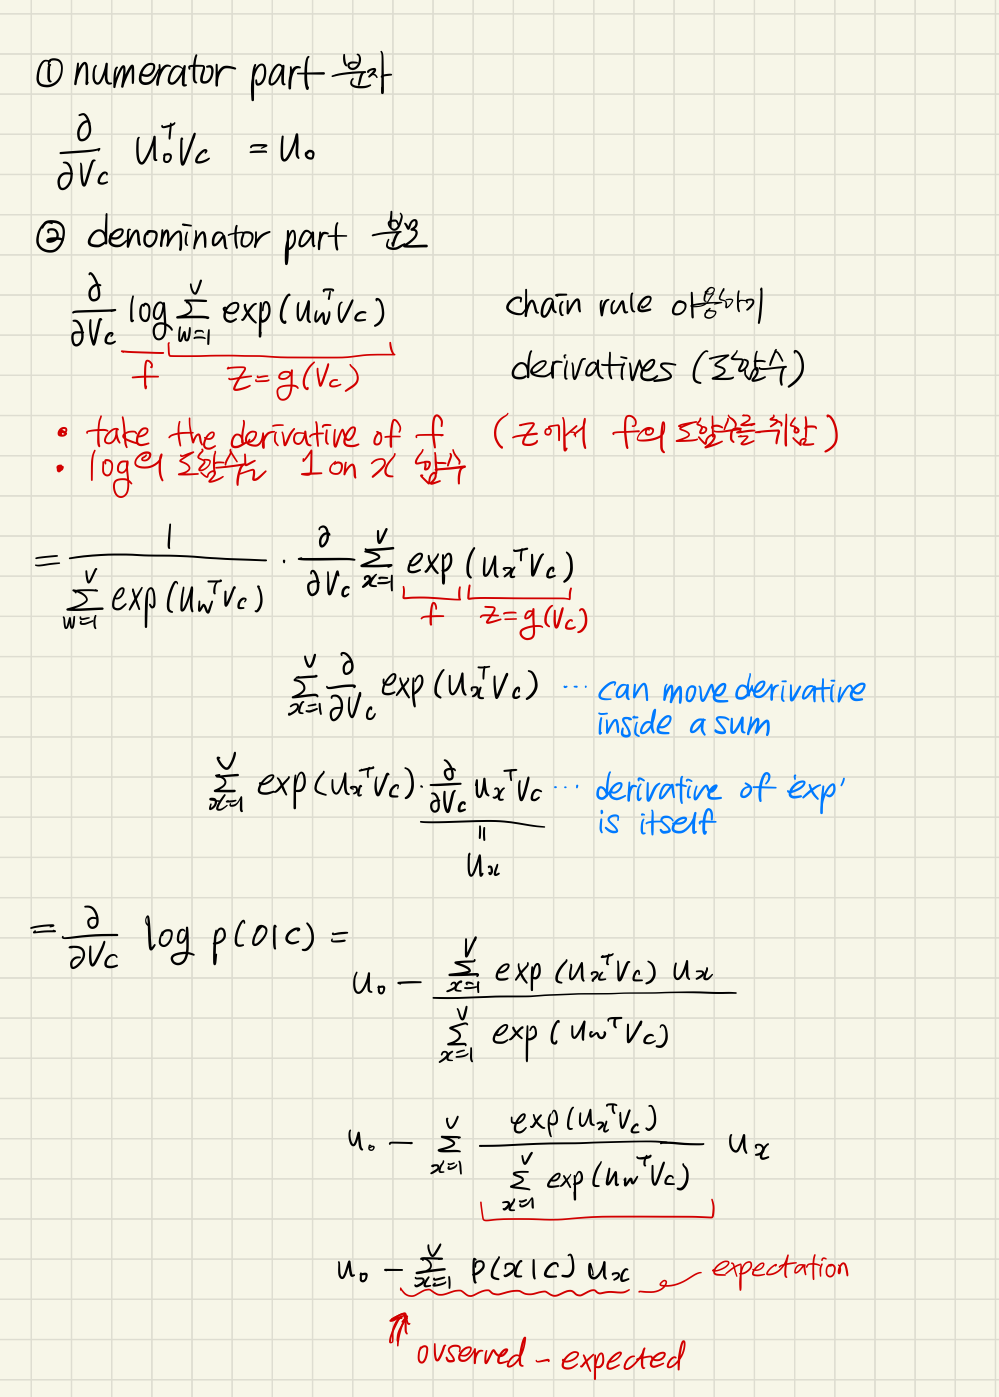 ① numerator part 분자
∂/∂Vc u₀ᵀVc = u₀
② denominator part 분모
∂/∂Vc log Σ_{w=1}^{V} exp(u_wᵀVc) chain rule 이용하기
f z=g(Vc) derivatives (도함수)
• take the derivative of f (z에서 f의 도함수를 취함)
• log의 도함수는 1 on x 함수
= 1/(Σ_{w=1}^{V} exp(u_wᵀVc)) · ∂/∂Vc Σ_{x=1}^{V} exp(u_xᵀVc)
f z=g(Vc)
Σ_{x=1}^{V} ∂/∂Vc exp(u_xᵀVc) ··· can move derivative
inside a sum
Σ_{x=1}^{V} exp(u_xᵀVc) · ∂/∂Vc u_xᵀVc ··· derivative of 'exp'
is itself
=
u_x
= ∂/∂Vc log p(o|c) =
u₀ − (Σ_{x=1}^{V} exp(u_xᵀVc) u_x)/(Σ_{x=1}^{V} exp(u_wᵀVc))
u₀ − Σ_{x=1}^{V} exp(u_xᵀVc)/(Σ_{x=1}^{V} exp(u_wᵀVc)) u_x
u₀ − Σ_{x=1}^{V} p(x|c) u_x expectation
ovserved - expected